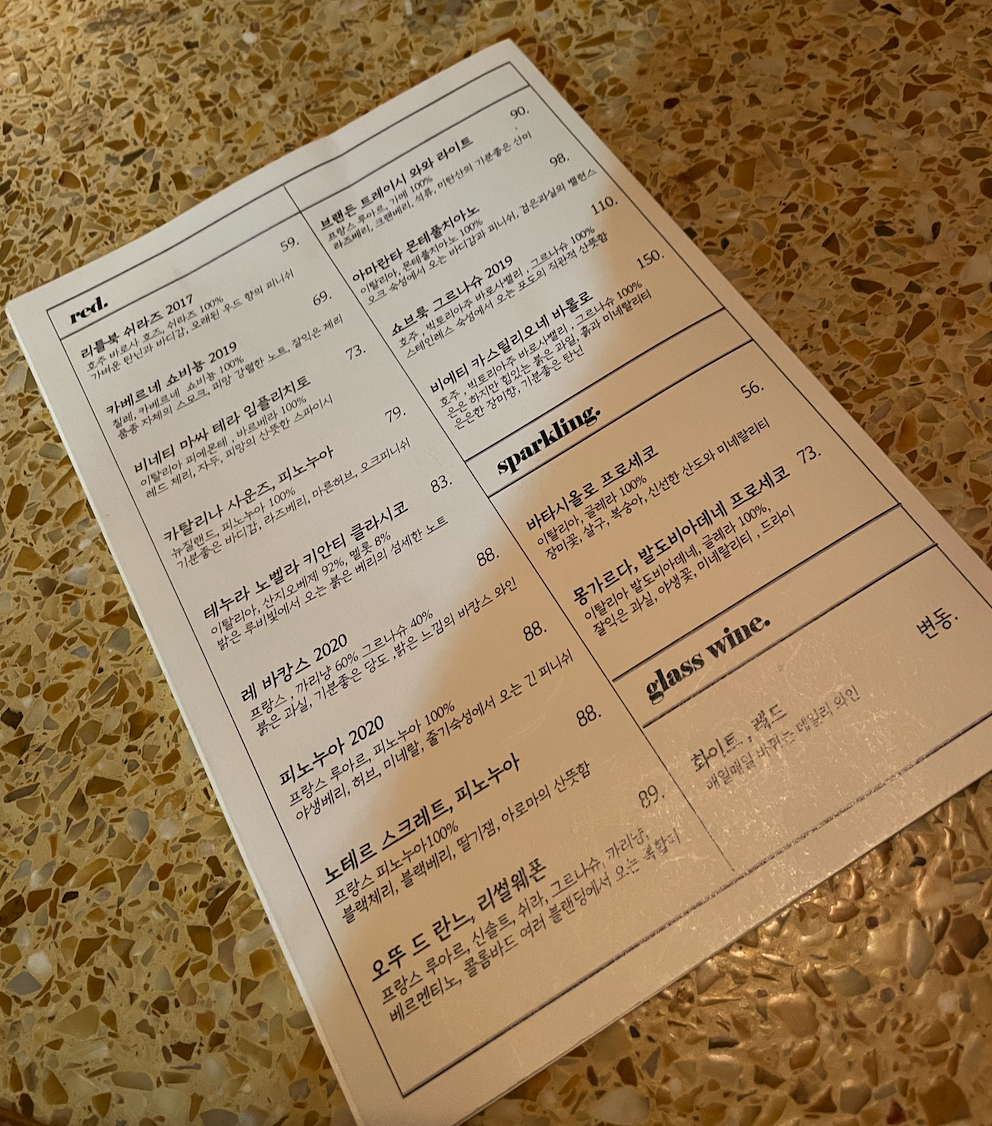 red.
59.
리틀북 쉬라즈 2017
호주 바로사 호즈, 쉬라즈 100%
가벼운 탄닌과 바디감, 오래된 우드 향의 피니쉬
69.
카베르네 쇼비뇽 2019
칠레, 카베르네 쇼비뇽 100%
품종 자체의 스모크, 피망 강렬한 노트, 잘익은 체리
73.
비네티 마싸 테라 임플리치토
이탈리아 피에몬테 , 바르베라 100%
레드 체리, 자두, 피망의 산뜻한 스파이시
79.
카탈리나 사운즈, 피노누아
뉴질랜드, 피노누아 100%
기분좋은 바디감, 라즈베리, 마른허브, 오크피니쉬
83.
테누라 노벨라 키안티 클라시코
이탈리아, 산지오베제 92%, 멜롯 8%
밝은 루비빛에서 오는 붉은 베리의 섬세한 노트
88.
레 바캉스 2020
프랑스 , 까리냥 60% 그르나슈 40%
붉은 과실, 기분좋은 당도 ,밝은 느낌의 바캉스 와인
88.
피노누아 2020
프랑스 루아르, 피노누아 100%
야생베리, 허브, 미네랄, 줄기숙성에서 오는 긴 피니쉬
88.
노테르 스크레트, 피노누아
프랑스 피노누아100%
블랙체리, 블랙베리, 딸기잼, 아로마의 산뜻함
89.
오뚜 드 란느, 리썰웨폰
프랑스 루아르, 신솔트, 쉬라, 그르나슈, 까리냥,
베르멘티노, 콜롬바드 여러 블랜딩에서 오는 복합미
90.
브랜든 트레이시 와와 라이트
프랑스 루아르, 가메 100%
라즈베리, 크랜베리, 석류, 미탄산의 기분좋은 산미
98.
아마란타 몬테풀치아노
이탈리아, 몬테풀치아노 100%
오크 숙성에서 오는 바디감과 피니쉬, 검은과실의 밸런스
110.
쇼브룩 그르나슈 2019
호주 , 빅토리아주 바로사밸리 , 그르나슈 100%
스테인레스 숙성에서 오는 포도의 직관적 산뜻함
150.
비에티 카스틸리오네 바롤로
호주 , 빅토리아주 바로사밸리 , 그르나슈 100%
은은 하지만 힘있는 붉은 과일, 흙과 미네랄리티
은은한 장미향, 기분좋은 탄닌
sparkling.
56.
바타시올로 프로세코
이탈리아, 글레라 100%
장미꽃, 살구, 복숭아, 신선한 산도와 미네랄리티
73.
몽가르다, 발도비아데네 프로세코
이탈리아 발도비아데네, 글레라 100%,
잘익은 과실, 야생꽃, 미네랄리티 , 드라이
glass wine.
변동.
화이트 , 레드
매일매일 바뀌는 데일리 와인